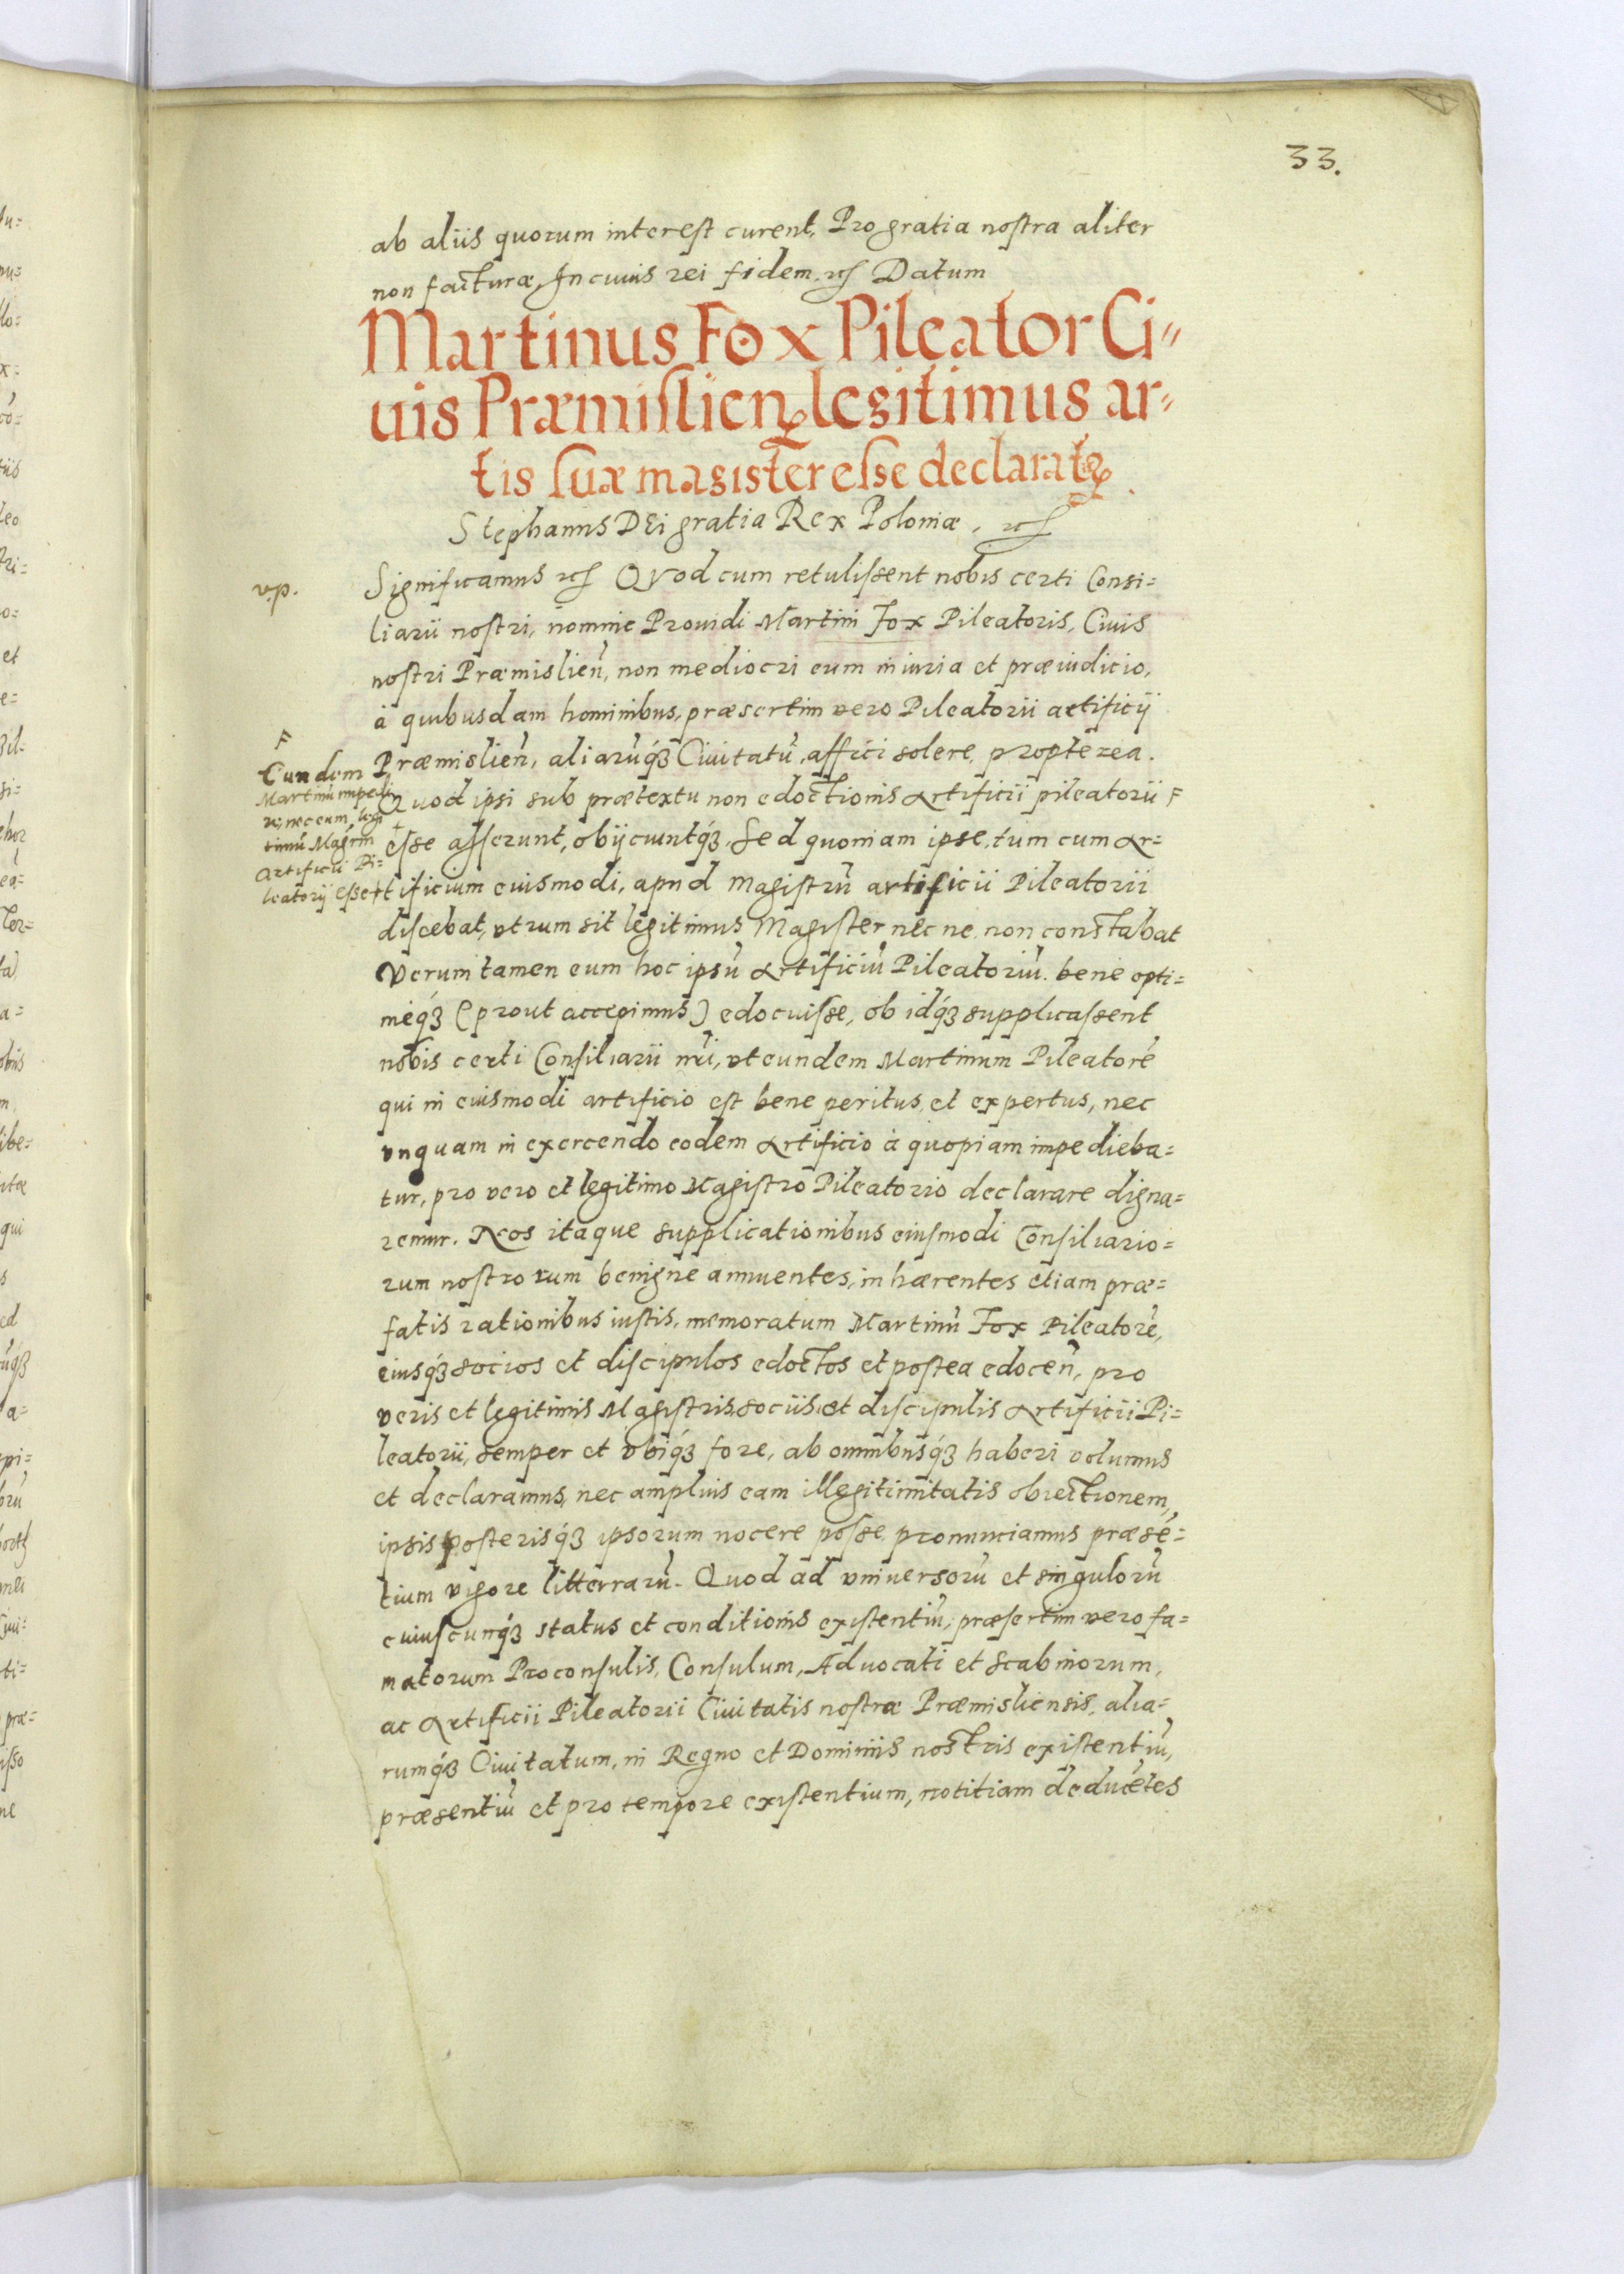 33.
ab aliis quorum interest curent, Pro gratia nostra aliter
non facturæ, In cuius rei fidem etc Datum
Martinus Fox Pileator Ci=
uis Præmislien legitimus ar=
tis suæ magister esse declaratꝰ
Stephanus DEi gratia Rex Poloniæ, etc
v.p.
Significamus etc QVod cum retulissent nobis certi Consi=
liarii nostri, nomine Prouidi Martini Fox Pileatoris, Ciuis
nostri Præmislieñ, non mediocri eum iniuria et præiudicio,
à quibusdam hominibus, præsertim vero Pileatorii artificij
Præmislieñ, aliarūq́ꝫ Ciuitatū, affici solere, propterea.
Quod ipsi sub prætextu non edoctionis Artificii pileatorii F
F
Eundem
Martinū impedi
ri, nec eum, legi
timū Magr̄m
Artificii Pi=
leatorij esse +
esse asserunt, obijciuntq́ꝫ. Sed quoniam ipse, tum cum Ar=
tificium euismodi, apud Magistrū artificii Pileatorii
discebat, vtrum sit legitimus Magister nec ne, non constabat
Verumtamen eum hoc ipsū Artificiū Pileatoriū. bene opti=
meq́ꝫ (prout accepimus) edocuisse, ob idq́ꝫ supplicassent
nobis certi Consiliarii nr̄i, vt eundem Martinum Pileatorē
qui in euismodi artificio est bene peritus, et expertus, nec
vnquam in exercendo eodem Artificio à quopiam impedieba=
tur, pro vero et legitimo Magistro Pileatorio declarare digna=
remur. Nos itaque supplicationibus eiusmodi Consiliario=
rum nostrorum benigne annuentes, inhærentes etiam præ=
fatis rationibus iustis, memoratum Martinū Fox Pileatorē,
eiusq́ꝫ socios et discipulos edoctos et postea edoceñ, pro
veris et legitimis Magistris, sociis, et discipulis Artificii Pi=
leatorii, semper et vbiq́ꝫ fore, ab omnibusq́ꝫ haberi volumus
et declaramus, nec amplius eam illegitimitatis obiectionem,
ipsis posterisq́ꝫ ipsorum nocere posse pronunciamus præsē=
tium vigore litterarū. Quod ad vniuersorū et singulorū
cuiuscunq́ꝫ status et conditionis existentiū, præsertim vero fa=
matorum Proconsulis, Consulum, Aduocati et Scabinorum,
ac Artificii Pileatorii Ciuitatis nostræ Præmisliensis, alia=
rumq́ꝫ Ciuitatum, in Regno et Dominiis nostris existentiū,
præsentiū et pro tempore existentium, notitiam deducētes